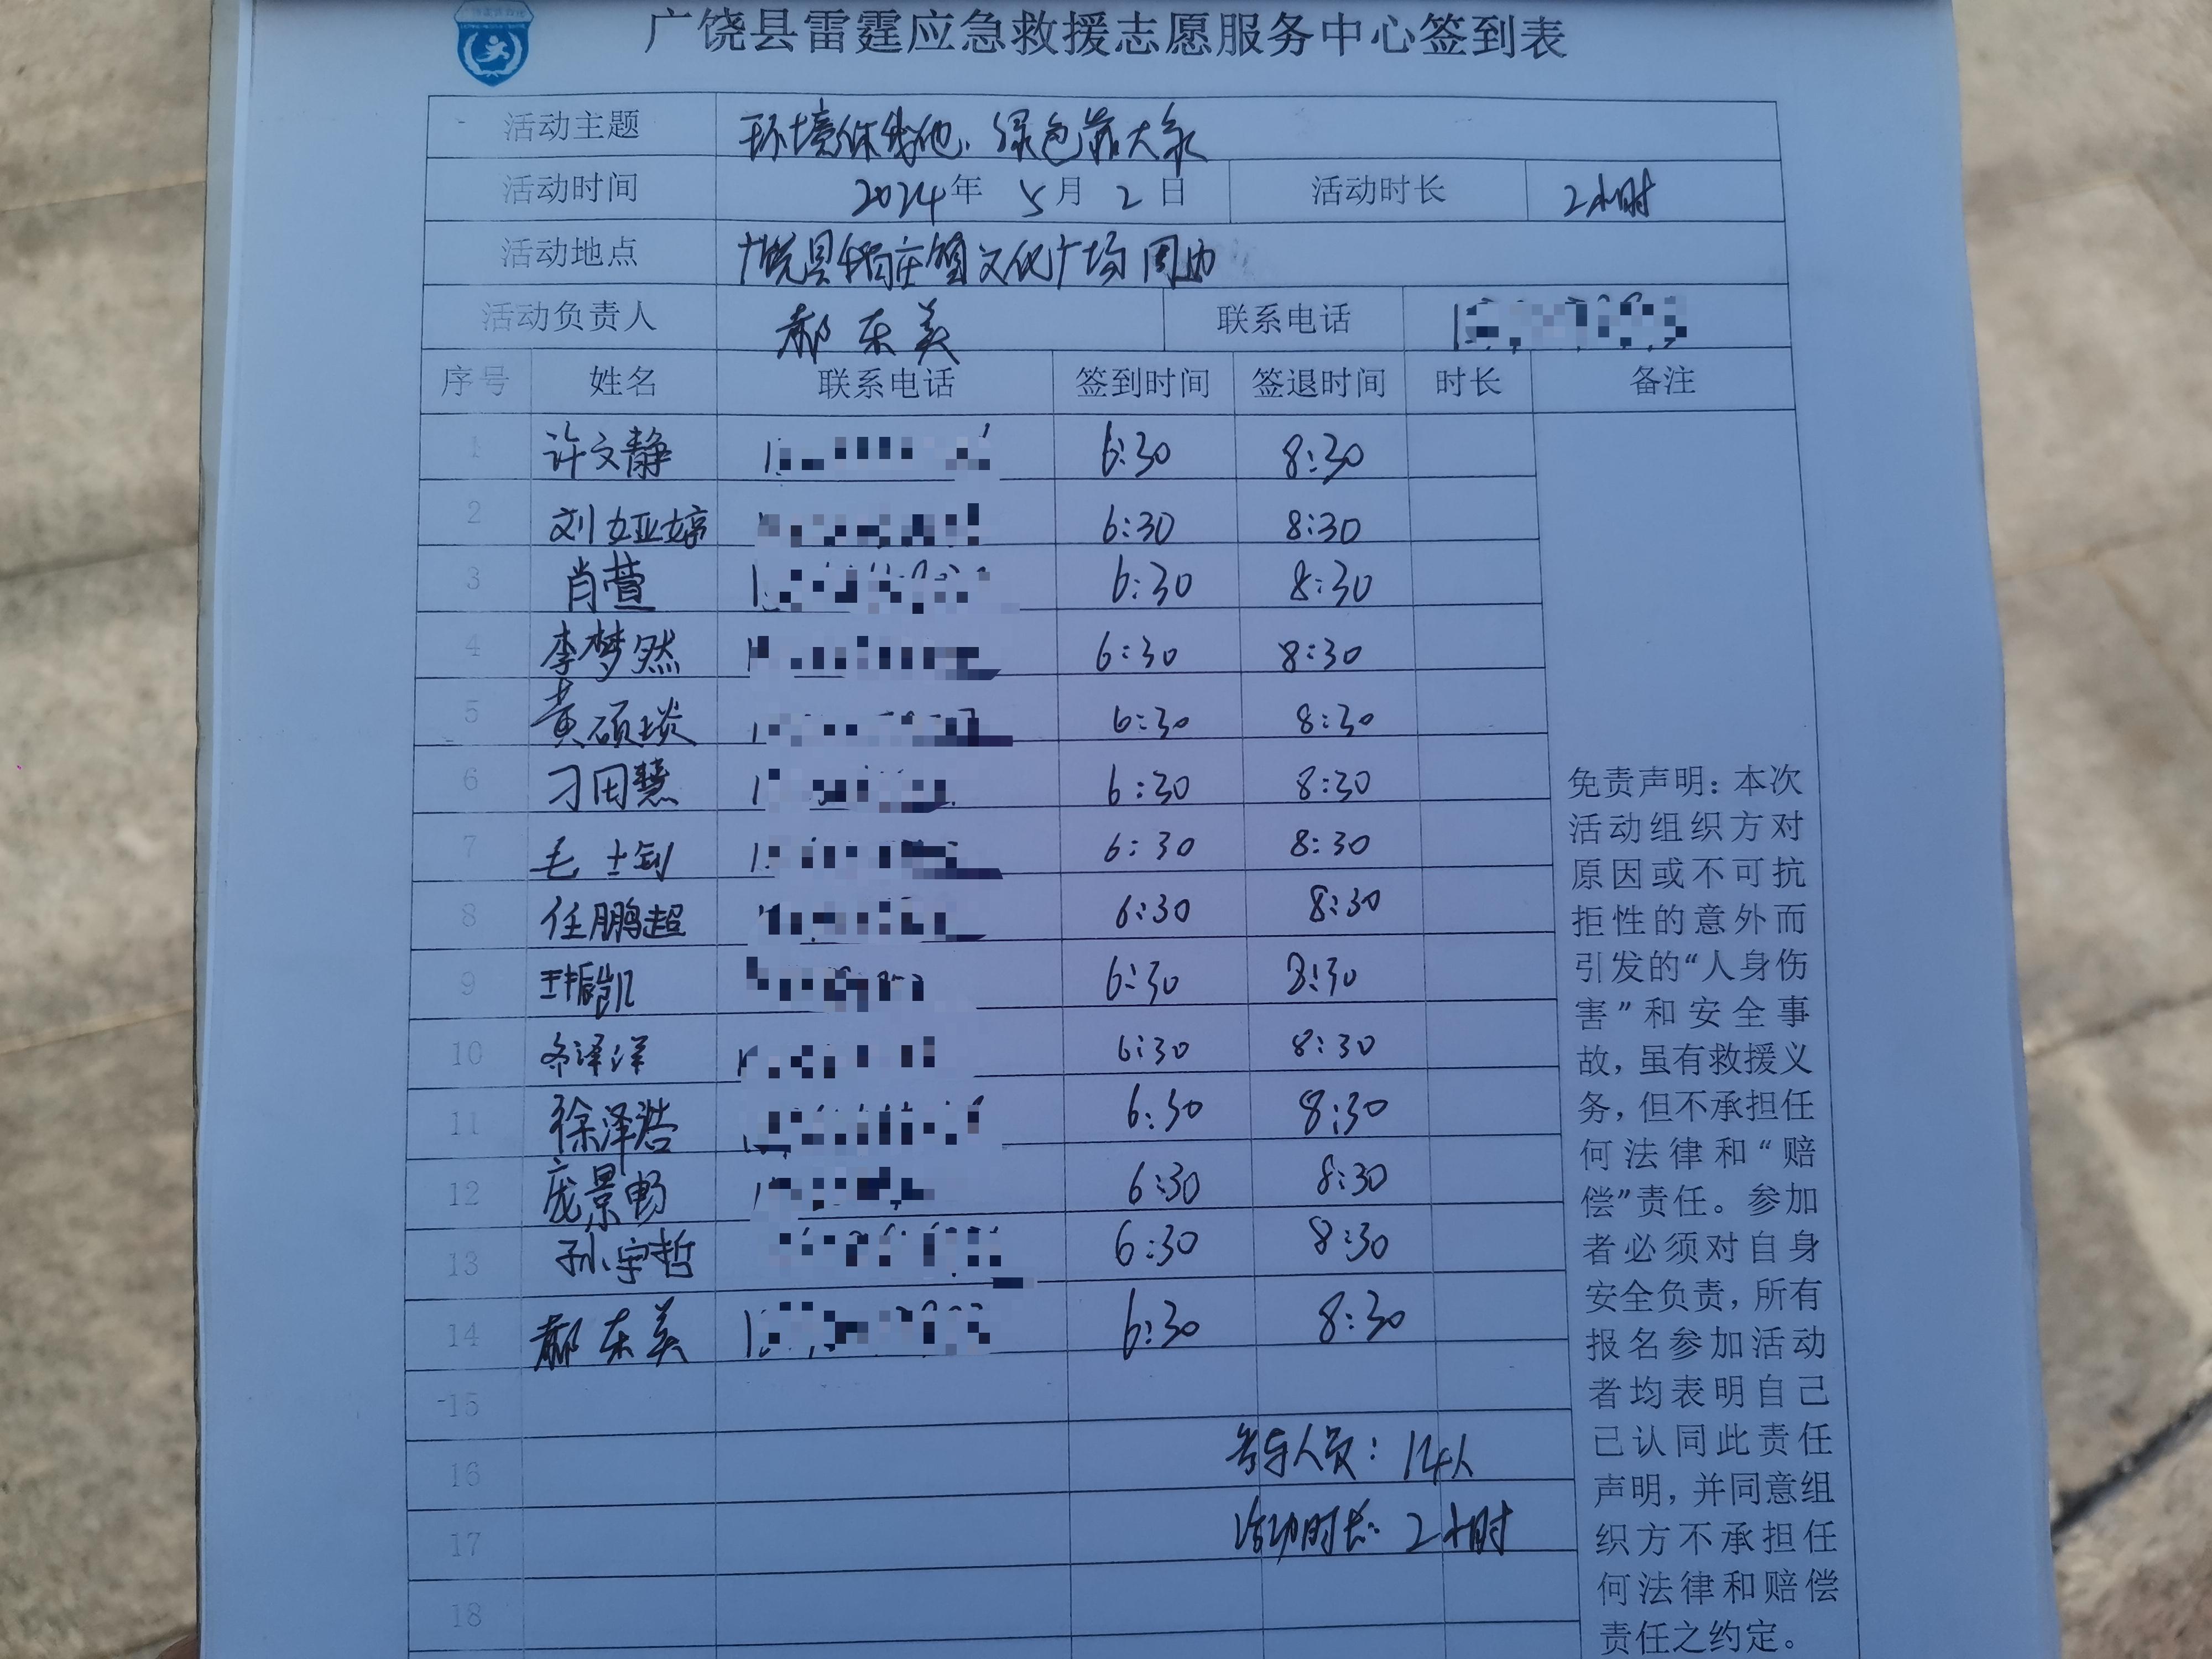 广饶县雷霆应急救援志愿服务中心签到表
活动主题 环境你我他、绿色靠大家
活动时间 2024年 5月 2日 活动时长 2小时
活动地点 广饶县稻庄镇文化广场周边
活动负责人 郝东美 联系电话
序号 姓名 联系电话 签到时间 签退时间 时长 备注
1 许文静 6:30 8:30
2 刘娅婷 6:30 8:30
3 肖萱 6:30 8:30
4 李梦然 6:30 8:30
5 黄硕琰 6:30 8:30
6 刁田慧 6:30 8:30
7 毛士钊 6:30 8:30
8 任鹏超 6:30 8:30
9 王振凯 6:30 8:30
10 泽洋 6:30 8:30
11 徐泽浩 6:30 8:30
12 庞景畅 6:30 8:30
13 孙宇哲 6:30 8:30
14 郝东美 6:30 8:30
15
16 参与人员：14人
17 活动时长：2小时
18
免责声明：本次
活动组织方对
原因或不可抗
拒性的意外而
引发的“人身伤
害”和安全事
故，虽有救援义
务，但不承担任
何法律和“赔
偿”责任。参加
者必须对自身
安全负责，所有
报名参加活动
者均表明自己
已认同此责任
声明，并同意组
织方不承担任
何法律和赔偿
责任之约定。